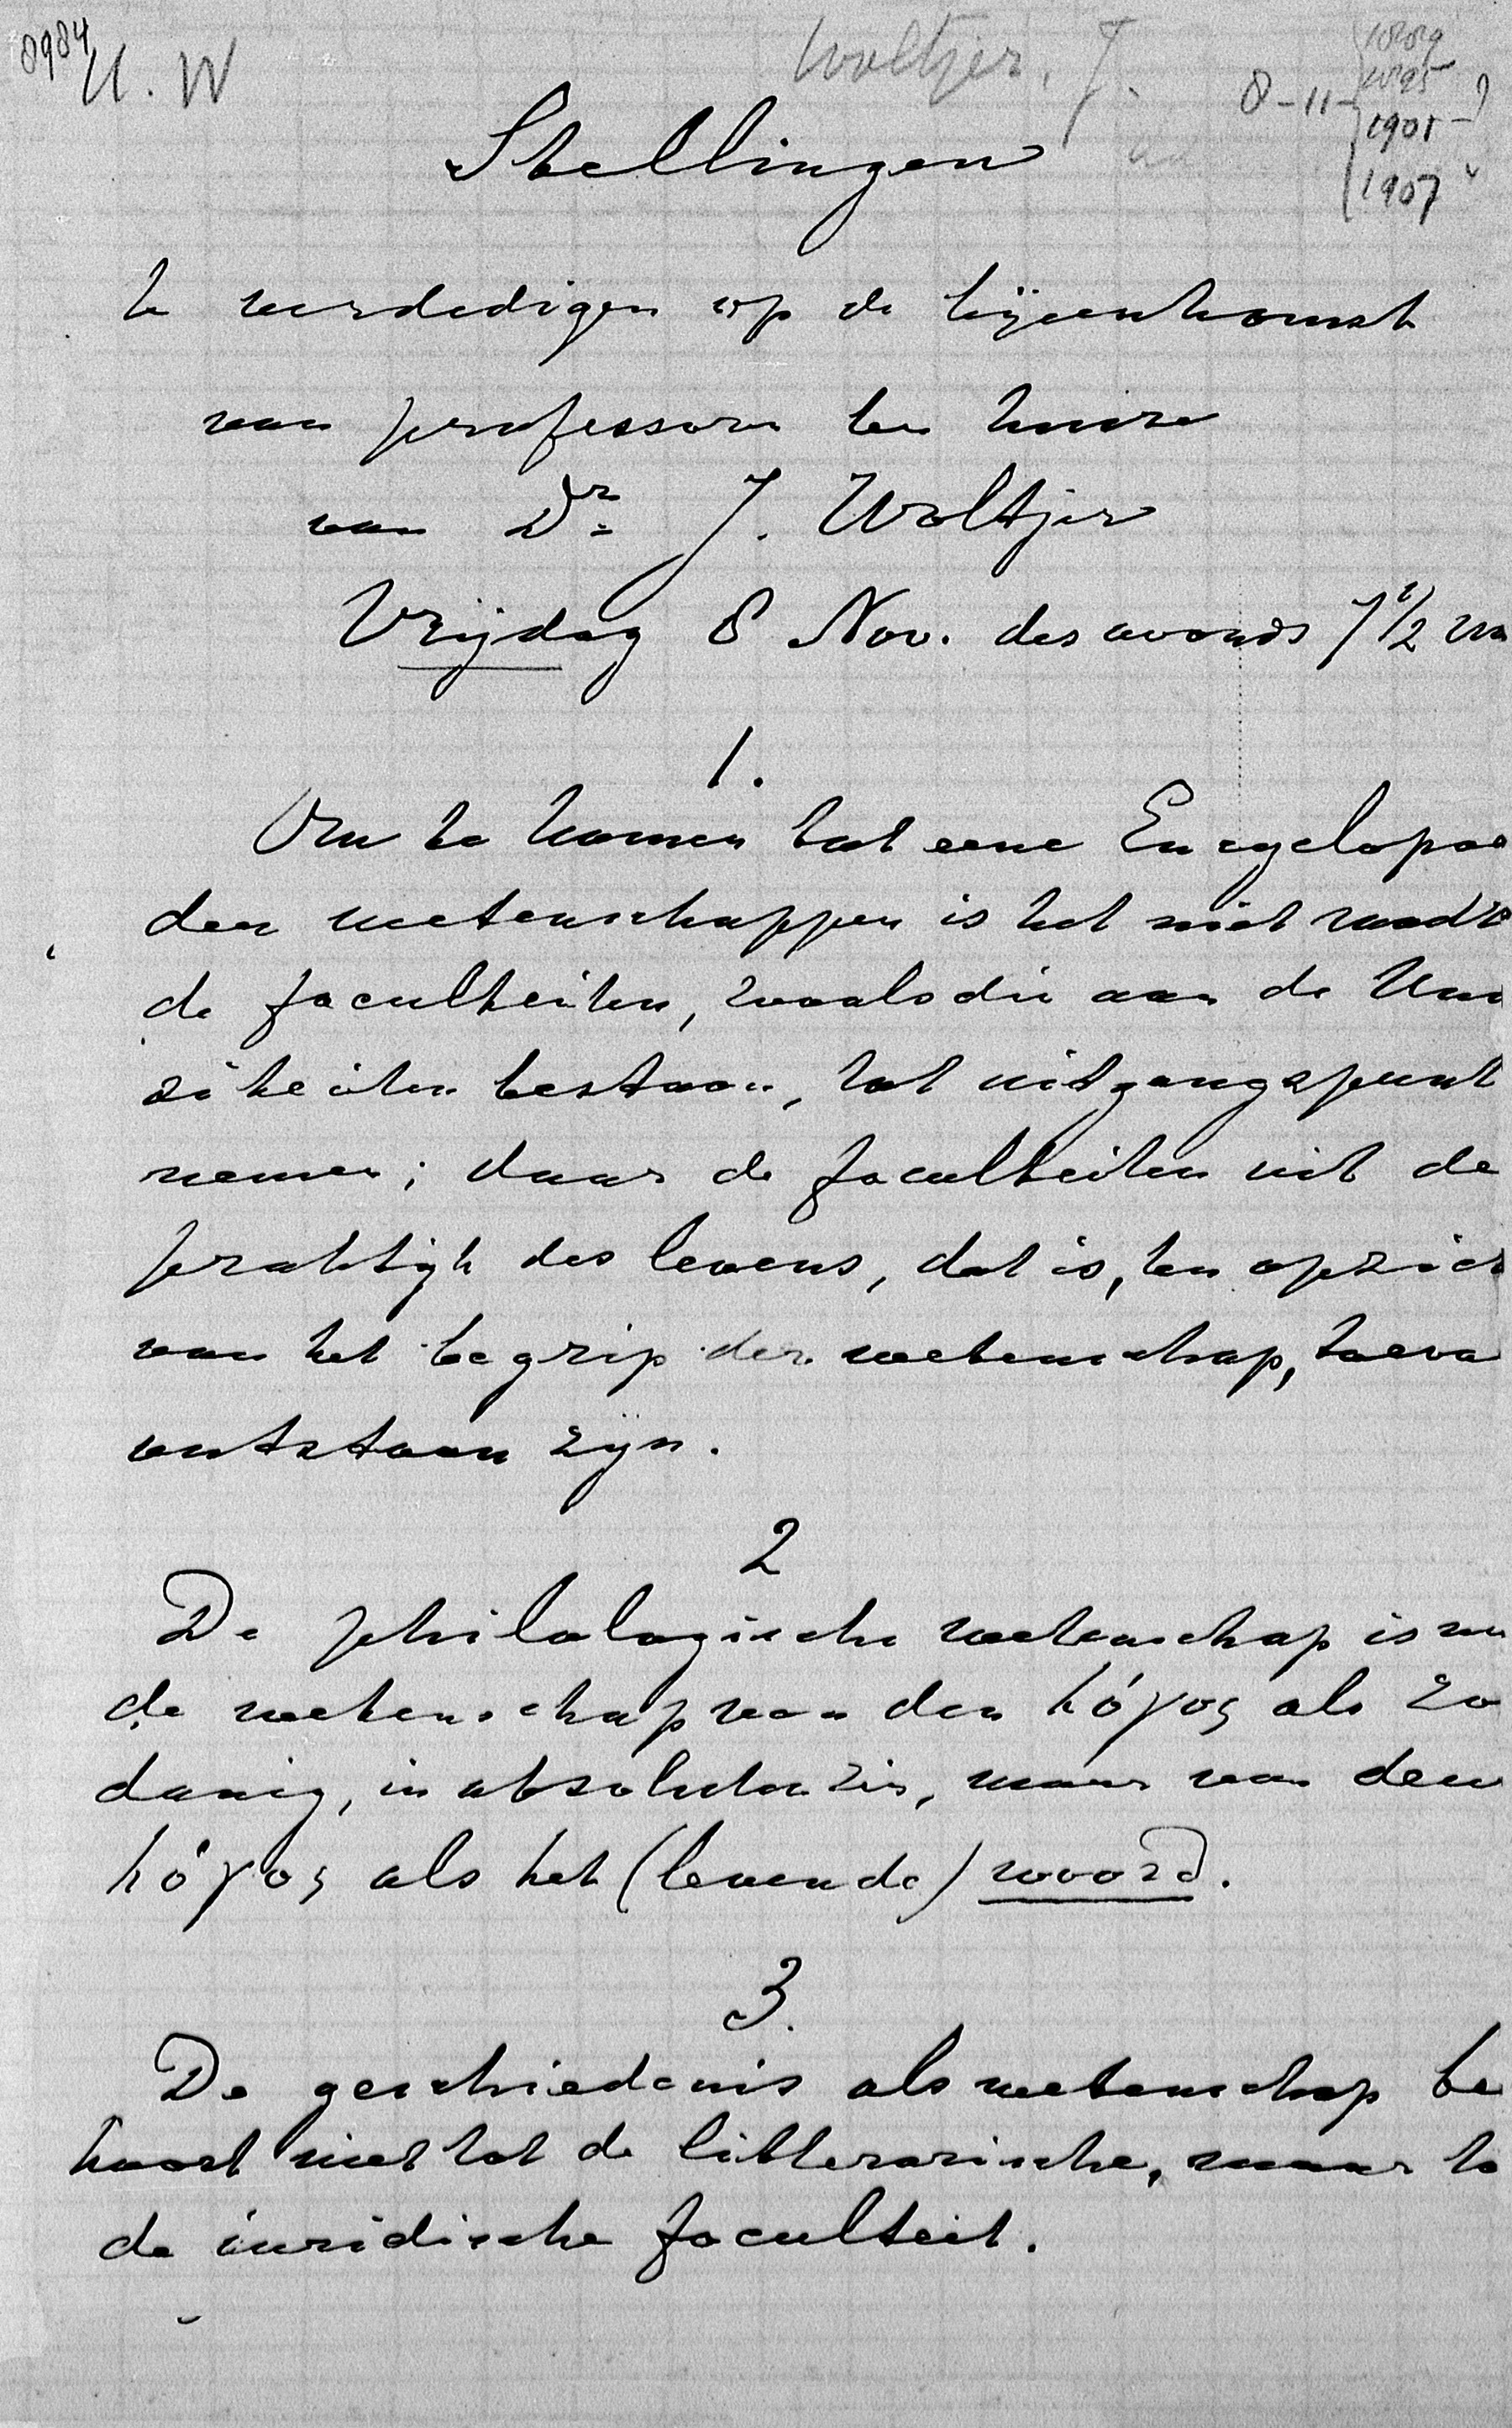 8984
U. W
Woltjer, J.
8-11-
1889
1895
1901
1907
?
Stellingen
te verdedigen op de bijeenkomst
van professoren ten huize
van Dr. J. Woltjer
Vrijdag 8 Nov. des avonds 7 1/2 uu
1.
Om te komen tot eene Encyclopae
der wetenschappen is het niet raadz
de faculteiten, zooals die aan de Uni
siteiten bestaan, tot uitgangspunt
nemen; daar de faculteiten uit de
praktijk des levens, dat is, ten opzich
van het begrip der wetenschap, toeva
ontstaan zijn.
2
De philologische wetenschap is
de wetenschap van den λόγος als zo
danig, in absoluten zin, maar van den
λόγος als het (levende) woord.
3.
De geschiedenis als wetenschap be
hoort niet tot de litterarische, maar to
de juridische faculteit.